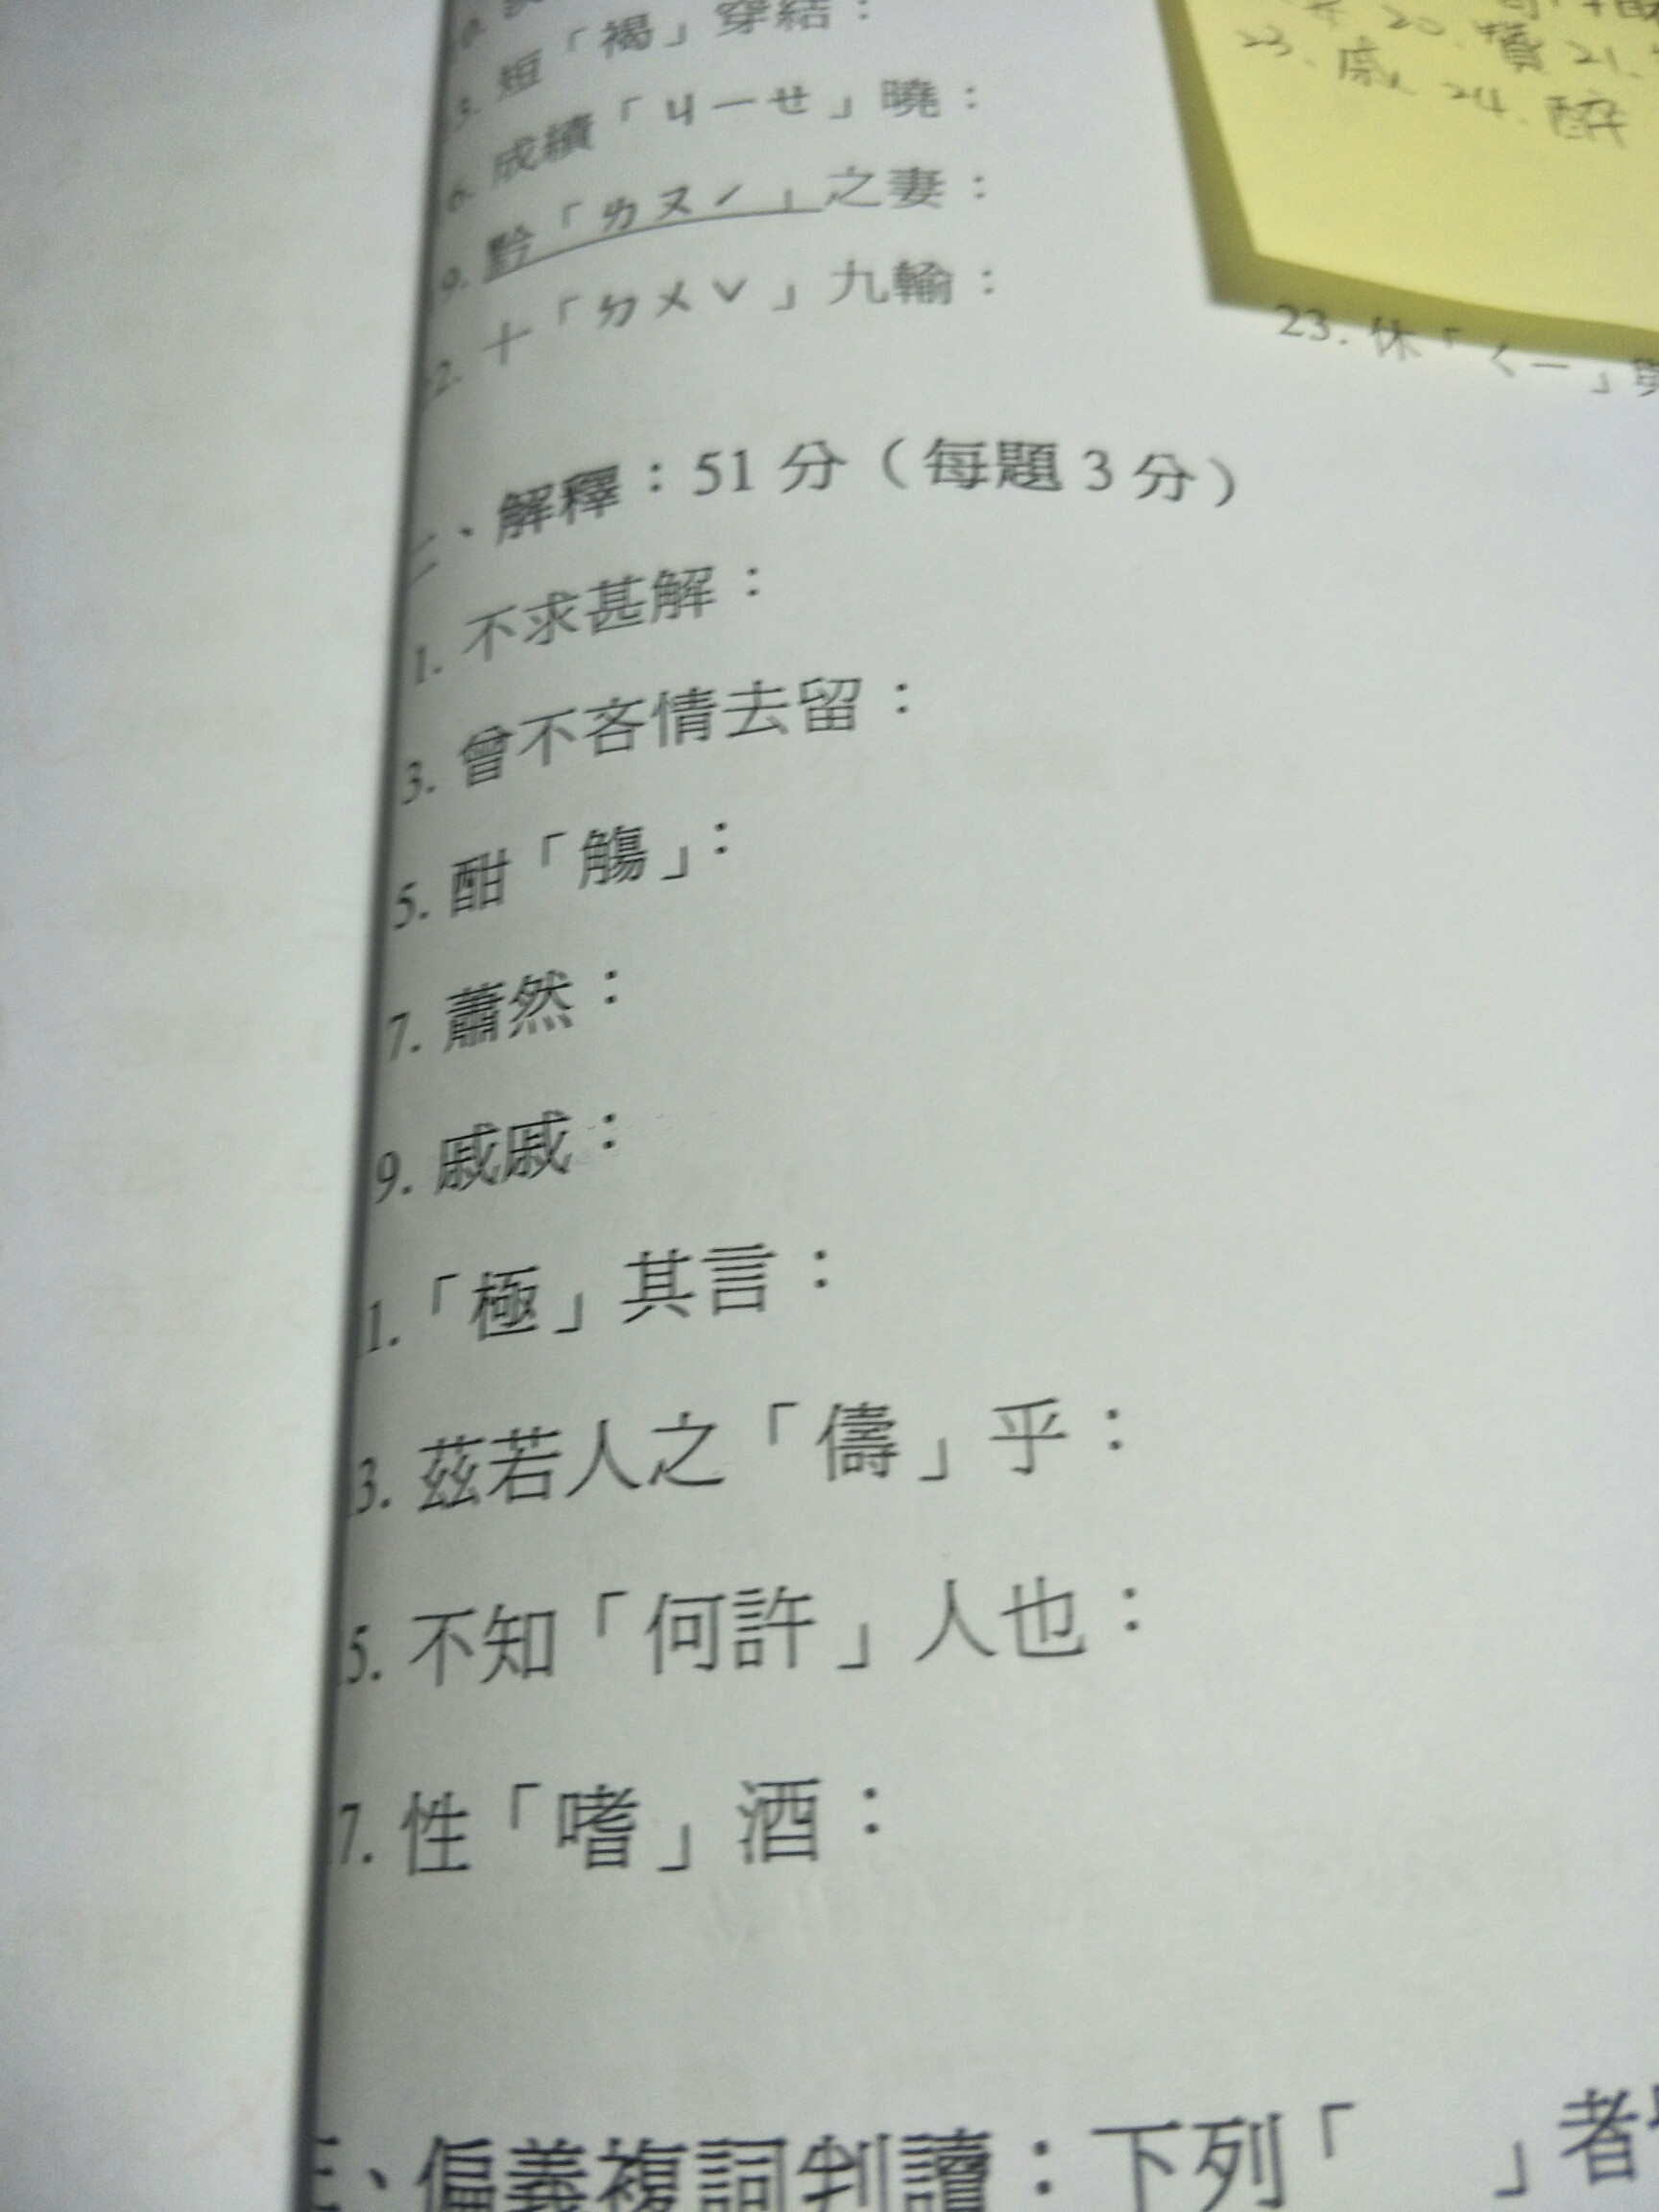 短「褐」穿結：
成績「ㄐㄧㄝ」曉：
黔「ㄌㄡˊ」之妻：
十「ㄉㄨˇ」九輸：
20. 23. 戚 24. 醉
21.
23. 休「ㄑㄧ」與
二、解釋：51 分（每題 3 分）
1. 不求甚解：
3. 曾不吝情去留：
5. 酣「觴」：
7. 蕭然：
9. 戚戚：
1.「極」其言：
3. 茲若人之「儔」乎：
5. 不知「何許」人也：
7. 性「嗜」酒：
、偏義複詞判讀：下列「 」者